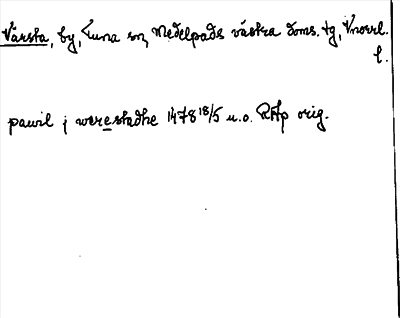 Värsta, by, Tuna sn, Medelpads västra doms. tg, Vnorrl.
l.
pawil j werestadhe 1478 18/5 u.o. RAp orig.